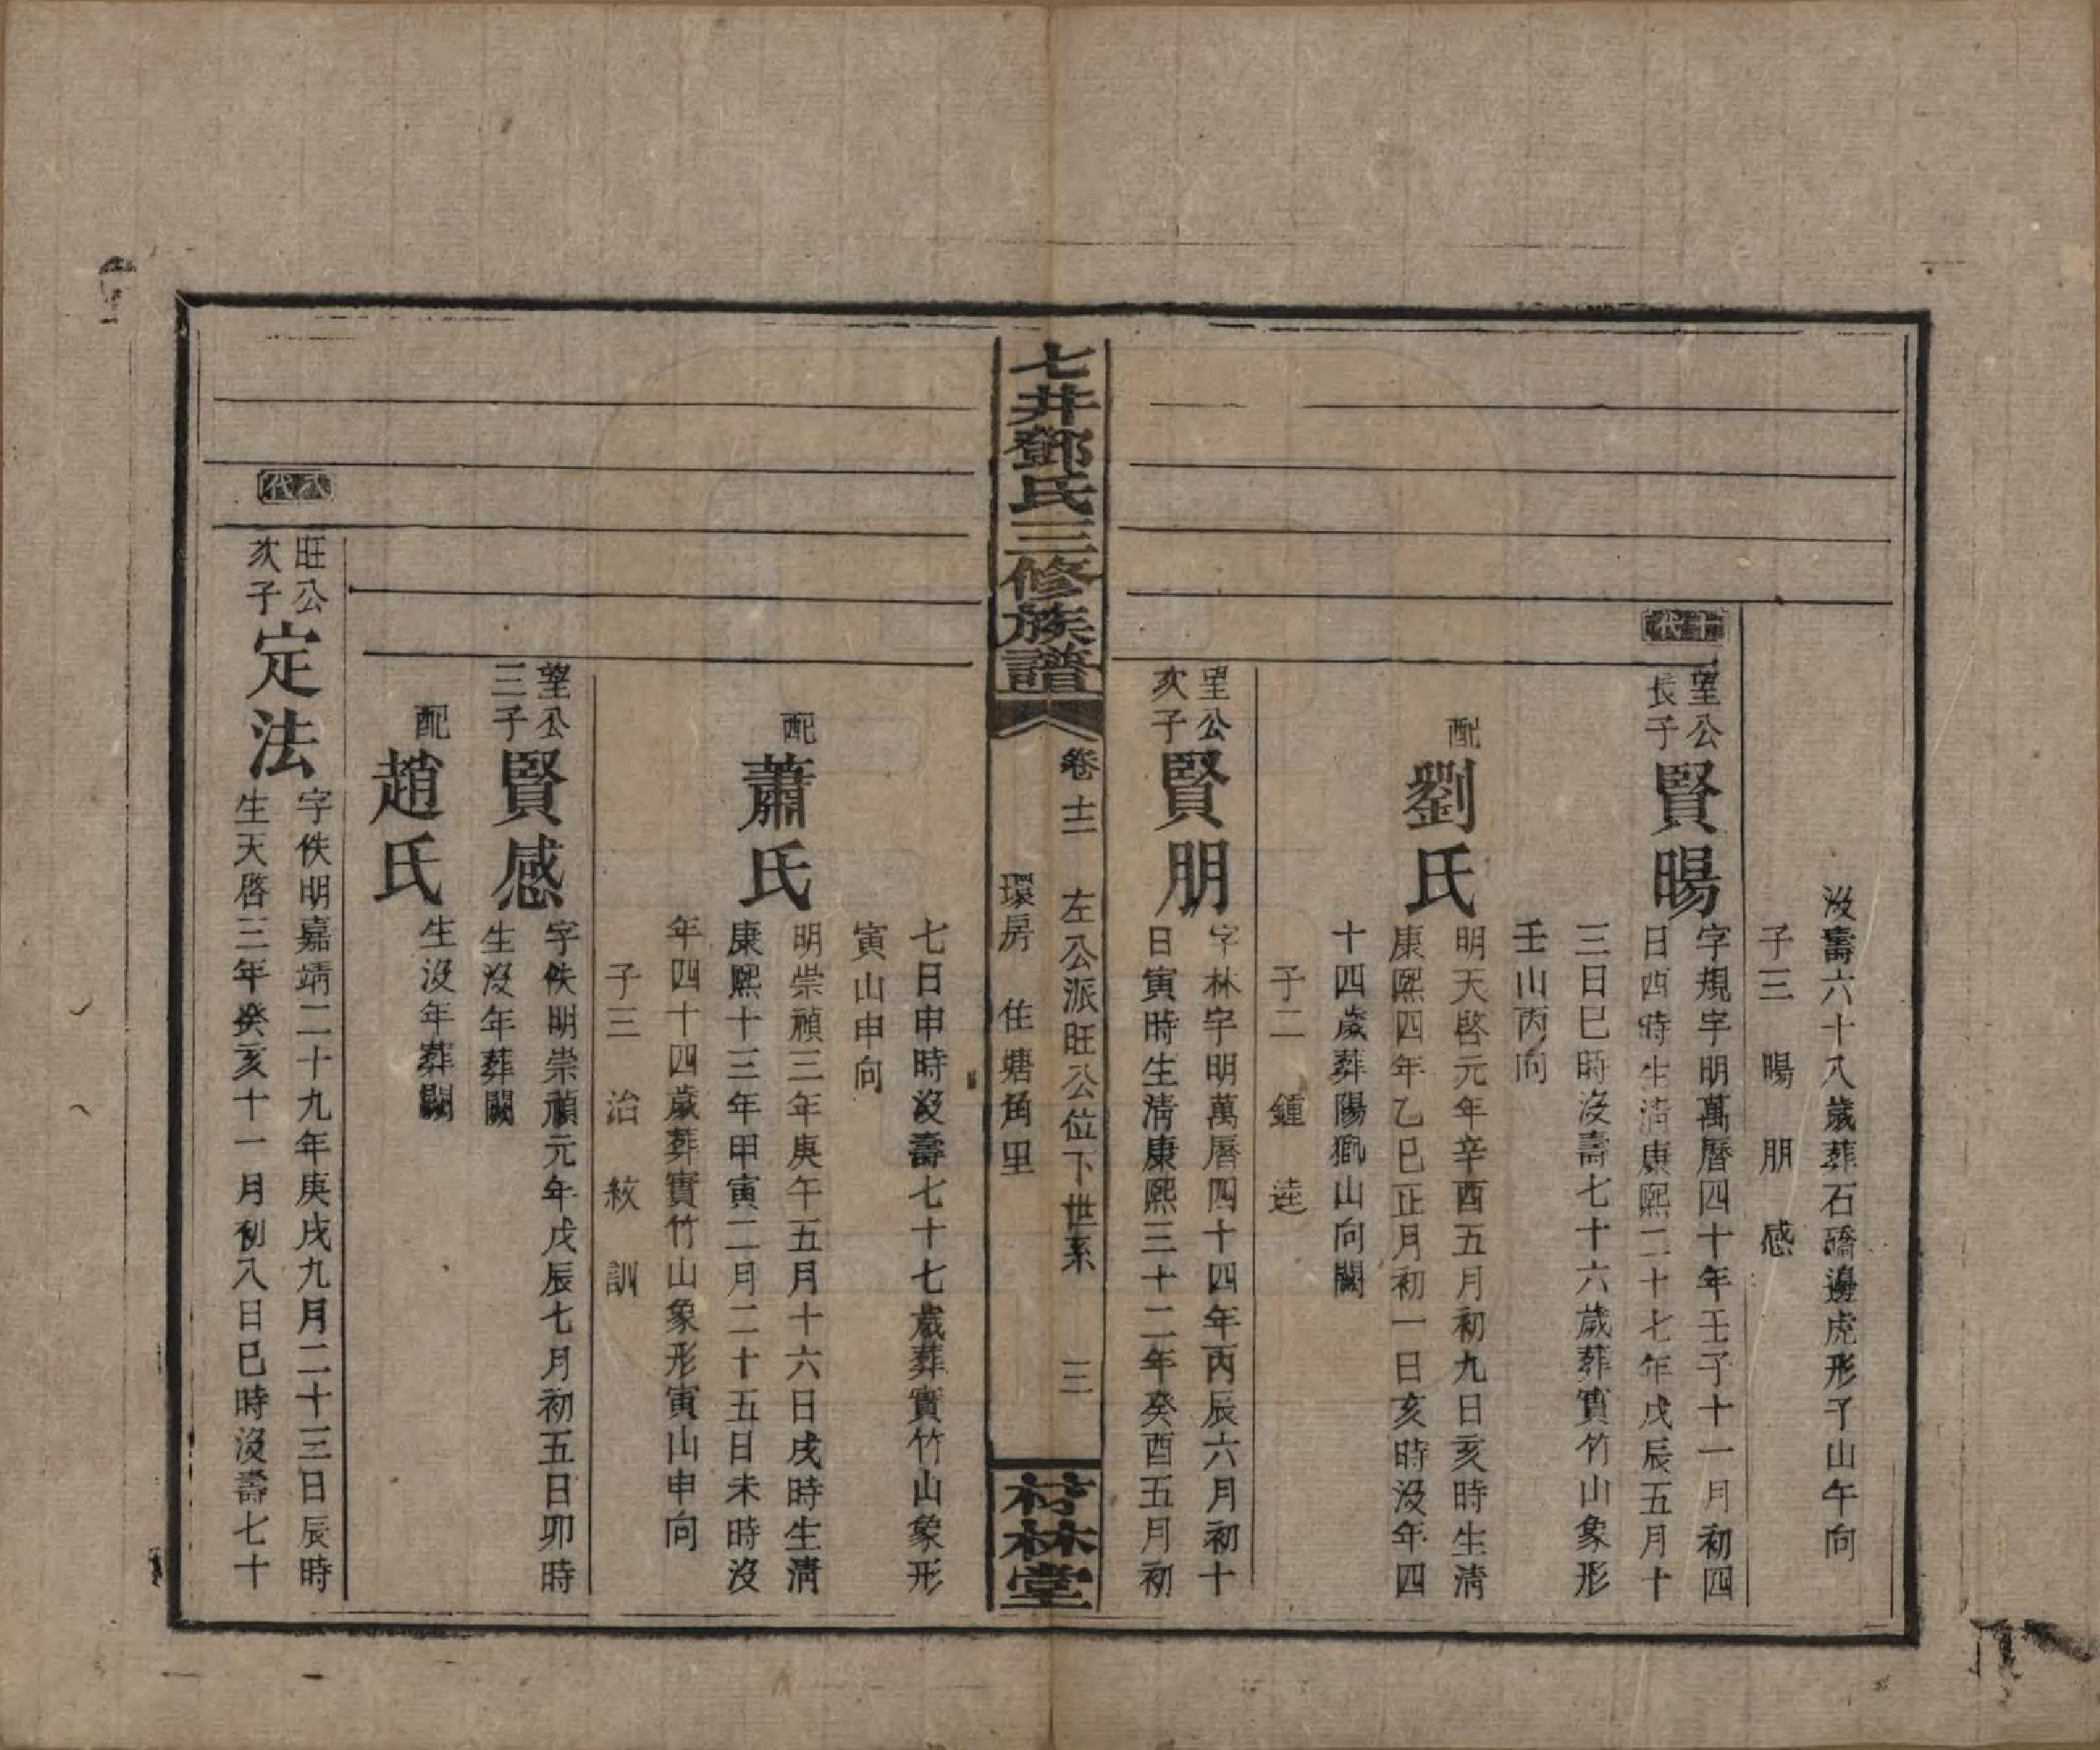 沒壽六十八歲葬石磽邊虎形子山午向
子三 暘 朋 感
十代
望公長子
賢暘
字規宇明萬曆四十年壬子十一月初四
日酉時生清康熙二十七年戊辰五月十
三日巳時沒壽七十六歲葬實竹山象形
壬山丙向
配
劉氏
明天啓元年辛酉五月初九日亥時生清
康熙四年乙巳正月初一日亥時沒年四
十四歲葬陽嶽山向闕
子二 鍾 逵
望公次子
賢朋
字林宇明萬曆四十四年丙辰六月初十
日寅時生清康熙三十二年癸酉五月初
七井鄧氏三修族譜
卷十三 左公派旺公位下世系 三
環房 住塘角里
村林堂
七日申時沒壽七十七歲葬實竹山象形
寅山申向
配
蕭氏
明崇禎三年庚午五月十六日戌時生清
康熙十三年甲寅二月二十五日未時沒
年四十四歲葬實竹山象形寅山申向
子三 治 紋 訓
望公三子
賢感
字佚明崇禎元年戊辰七月初五日卯時
生沒年葬闕
配
趙氏
生沒年葬闕
八代
旺公次子
定法
字佚明嘉靖二十九年庚戌九月二十三日辰時
生天啓三年癸亥十一月初八日巳時沒壽七十